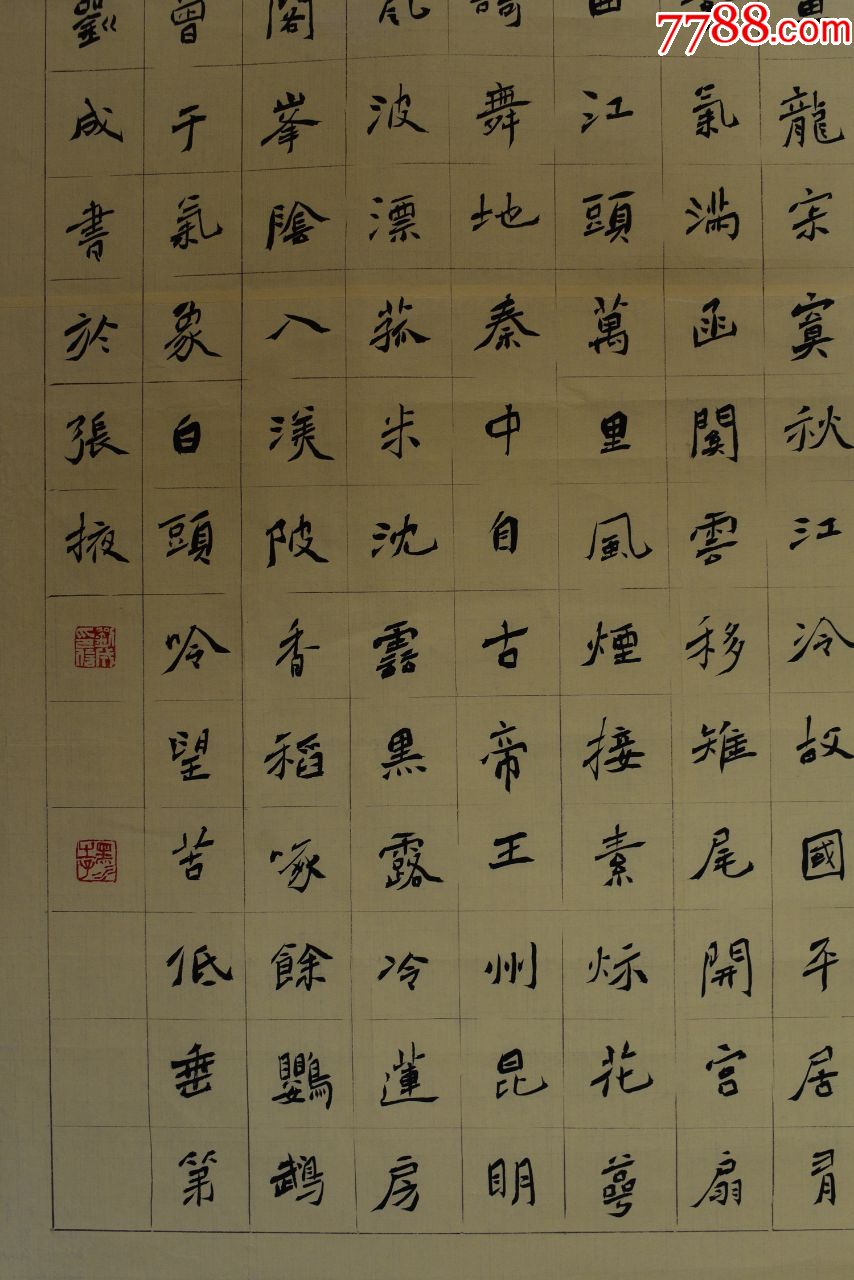 7788.com
龍寂寞秋江冷故國平居有
氣滿函關雲移雉尾開宮扇
江頭萬里風煙接素秋花萼
歌舞地秦中自古帝王州昆明
風波漂菰米沈雲黑露冷蓮房
閣峯陰入渼陂香稻啄餘鸚鵡
曾干氣象白頭吟望苦低垂第
劉成書於張掖